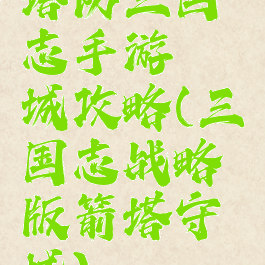 塔防三国
志手游
城攻略(三
国志战略
版箭塔守
城)